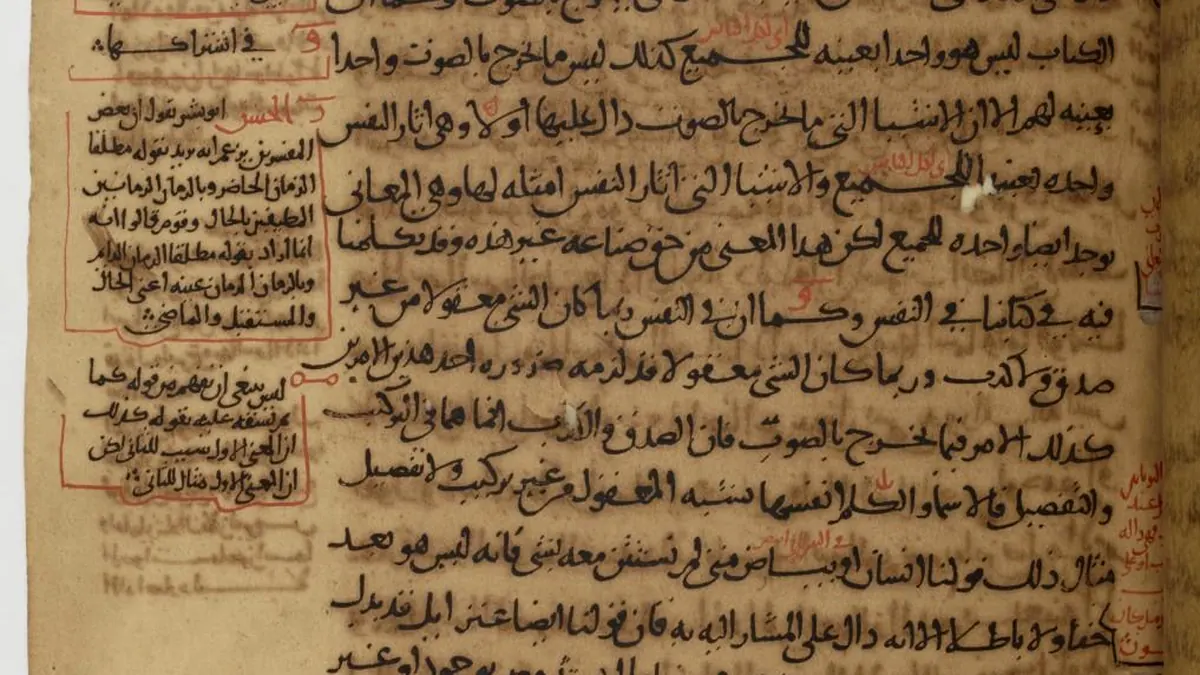 الكتاب ليس هو واحدا بعينه للجميع كذلك ليس ما يخرج بالصوت واحدا
بعينه لهم الا ان الاشيا التي ما يخرج بالصوت دال عليها اولا وهي اثار النفس
واحده بعينها للجميع والاشيا التي اثار النفس امثله لها وهي المعاني
يوجد ايضا واحده للجميع لكن هذا المعنى من حق صناعه غير هذه وقد تكلمنا
فيه في كتابنا في النفس وكما ان في النفس ربما كان الشي معقولا من غير
صدق ولا كذب وربما كان الشي معقولا قد لزمه ضروره احد هذين الامرين
كذلك الامر فيما يخرج بالصوت فان الصدق والكذب انما هما في التركيب
والتفصيل فالاسما والكلم انفسها يشبه المعقول من غير تركيب ولا تفصيل
مثال ذلك قولنا انسان او بياض متى لم نستثن معه بشي فانه ليس هو بعد
حقا ولا باطلا الا انه دال على المشار اليه به فان قولنا ايضا عنز ايل قد يدل
في اشتراكها
الحسن ابو بشر يقول ان بعض
المفسرين يزعم انه يريد بقوله مطلقا
الزمان الحاضر وبالزمان الزمانين
المطيفين بالحال وقوم قالوا انه
انما اراد بقوله مطلقا الزمان الدائم
وبالزمان الزمان عينه اعني الحال
والمستقبل والماضي
ليس ينبغي ان نفهم من قوله كما
ثم نسقه عليه بقوله كذلك
ان المعنى الاول سبب للثاني لكن
ان المعنى الاول مثال للثاني